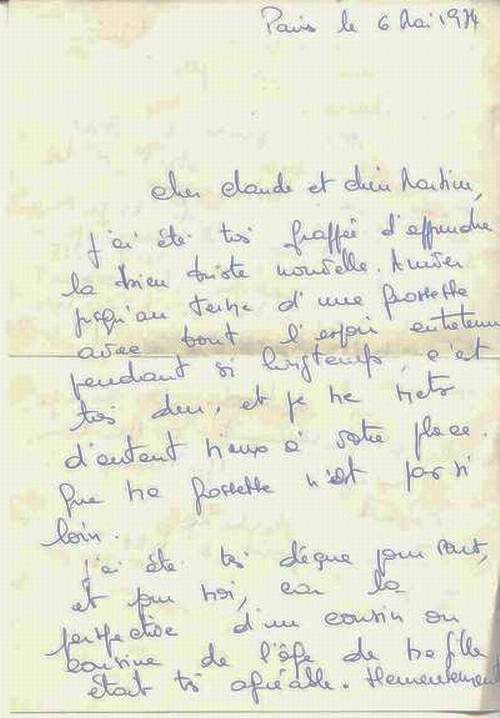 Paris le 6 Mai 1974
Cher Claude et chère Martine,
J'ai été très frappée d'apprendre
la bien triste nouvelle. Arriver
jusqu'au terme d'une grossesse
avec tout l'espoir entretenu
pendant si longtemps, c'est
très dur, et je me mets
d'autant mieux à votre place
que ma grossesse n'est pas si
loin.
J'ai été très déçue pour vous,
et pour moi, car la
perspective d'un cousin ou
cousine de l'âge de ma fille
était très agréable. Heureusement